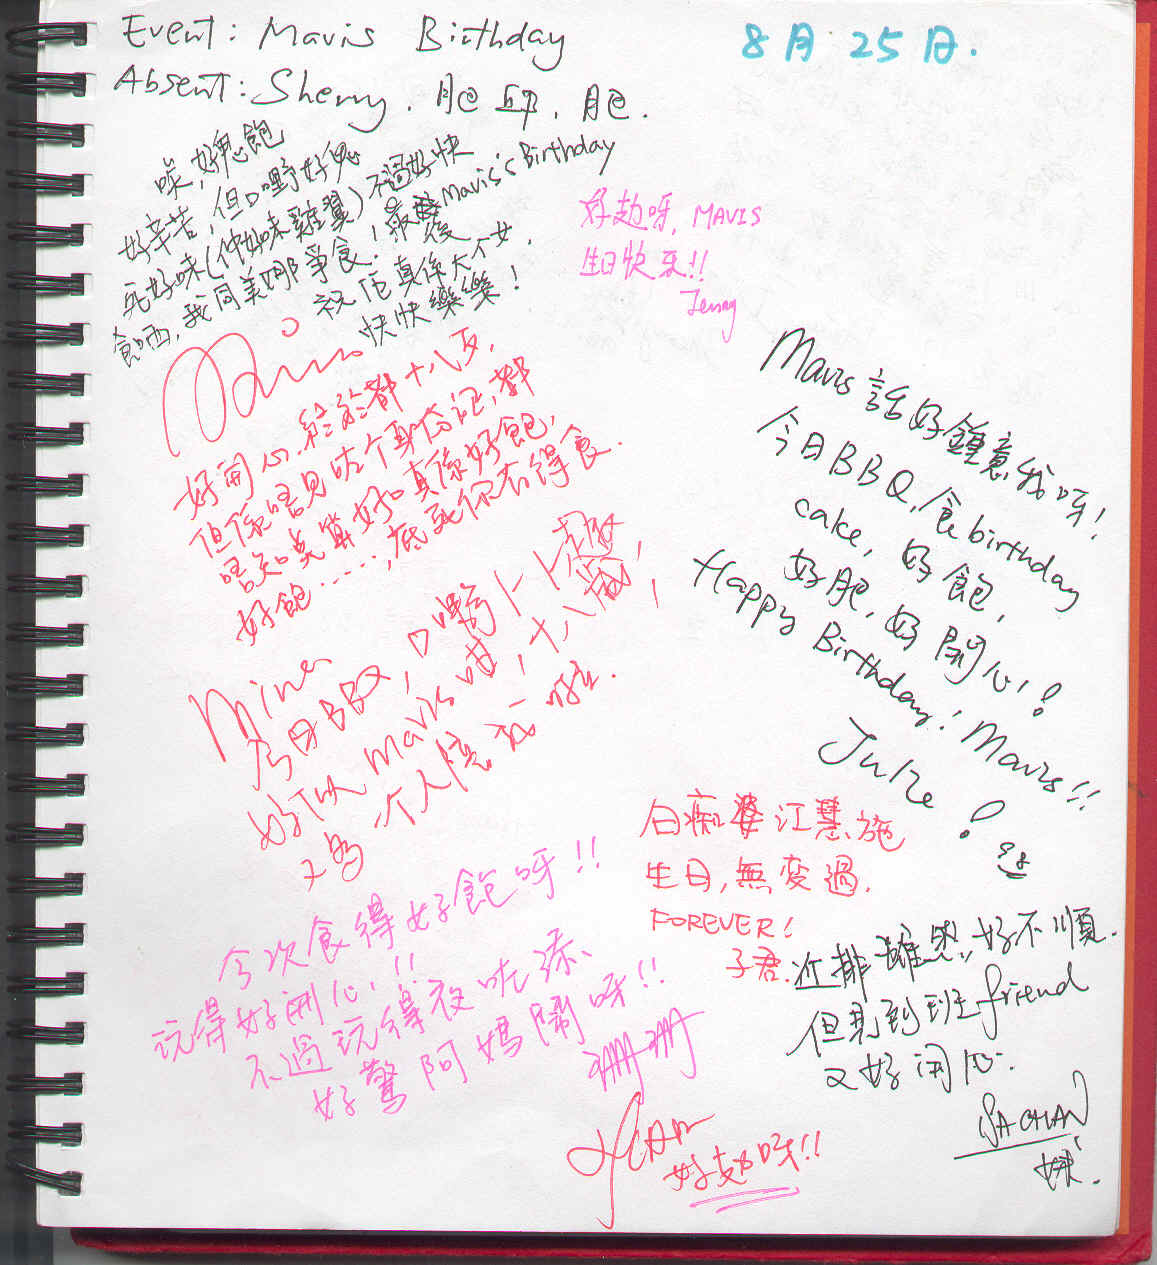 Event: Mavis Birthday
8月25日.
Absent: Sherry, 肥 昂, 肥.
唉,好鬼飽
好辛苦,但D嘢好鬼
死好味(仲好味雞翼)不過好快
食晒,我同美娜爭食!最後Mavis's Birthday
祝佢真係大个女,
快快樂樂!
好攰呀, MAVIS
生日快乐!!
Jenny
Mavis
好開心,終於都十八歲,
但係唔見咗个身份证,都
唔知点算好。真係好飽,
好飽......,底死你冇得食.
Mavis 話好鍾意我呀!
今日BBQ,食birthday
cake, 好飽,
好肥,好開心!
Happy Birthday! Mavis!!
June!
今日BBQ, D嘢
Mavis 十八歲
白痴婆江慧施
生日,無变過.
FOREVER!
子君.
今次食得好飽呀!!
玩得好開心!!
不過玩得夜咗添、
好驚阿媽鬧呀!!
近排雖然好不順.
但見到班friend
又好開心.
SA CHAN
Jean
好攰呀!!